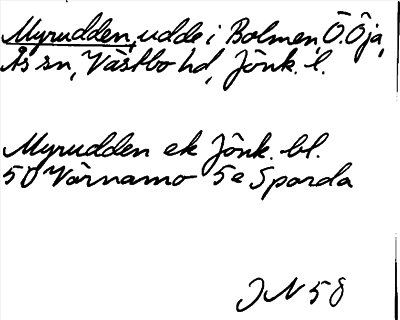 Myrudden, udde i Bolmen, Ö. Öja,
Ås sn, Västbo hd, Jönk. l.
Myrudden ek Jönk. bl.
5D Värnamo 5e Sparda
JN 58